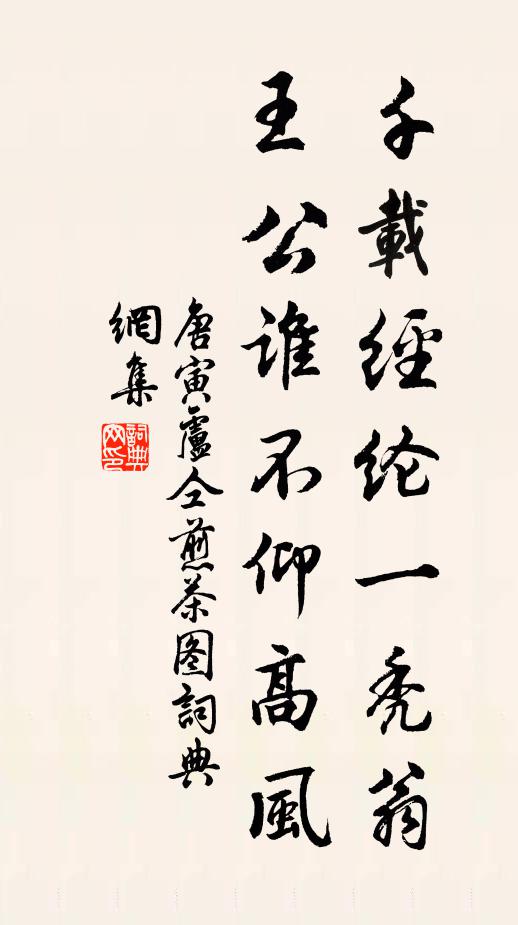 千載經纶一秃翁
王公谁不仰高風
唐寅盧仝煎茶图詞典
網集
詞典
网印